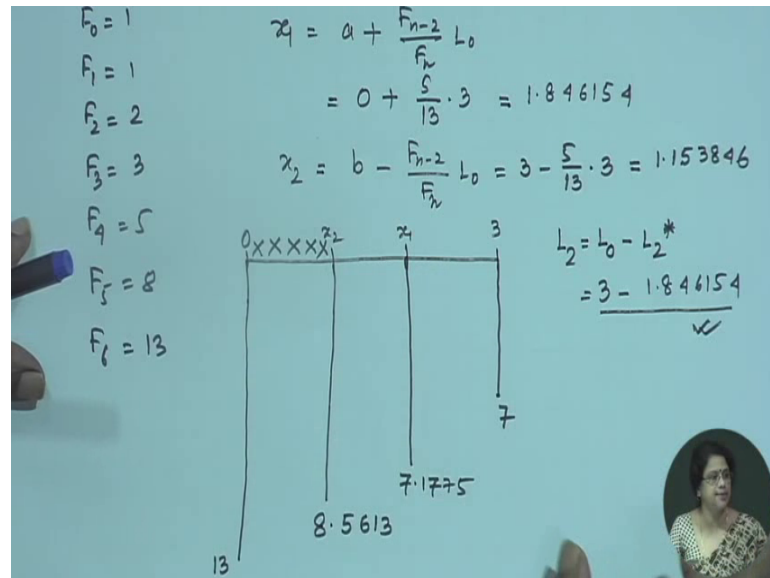 F₀ = 1
F₁ = 1
F₂ = 2
F₃ = 3
F₄ = 5
F₅ = 8
F₆ = 13
x₁ = a + F_{n-2}/F_n L₀
= 0 + 5/13 · 3 = 1.846154
x₂ = b - F_{n-2}/F_n L₀ = 3 - 5/13 · 3 = 1.153846
0 x x x x x x₂ x₁ 3
L₂ = L₀ - L₂*
= 3 - 1.846154
7
7.1775
8.5613
13